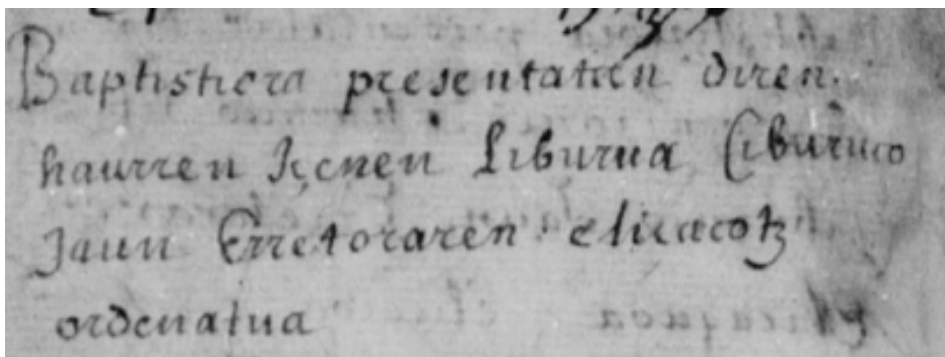 Baptistiora presentatien diren
haurren Içenen Liburua Ciburuco
Jaun Erretoraren elicacotz
ordenatua